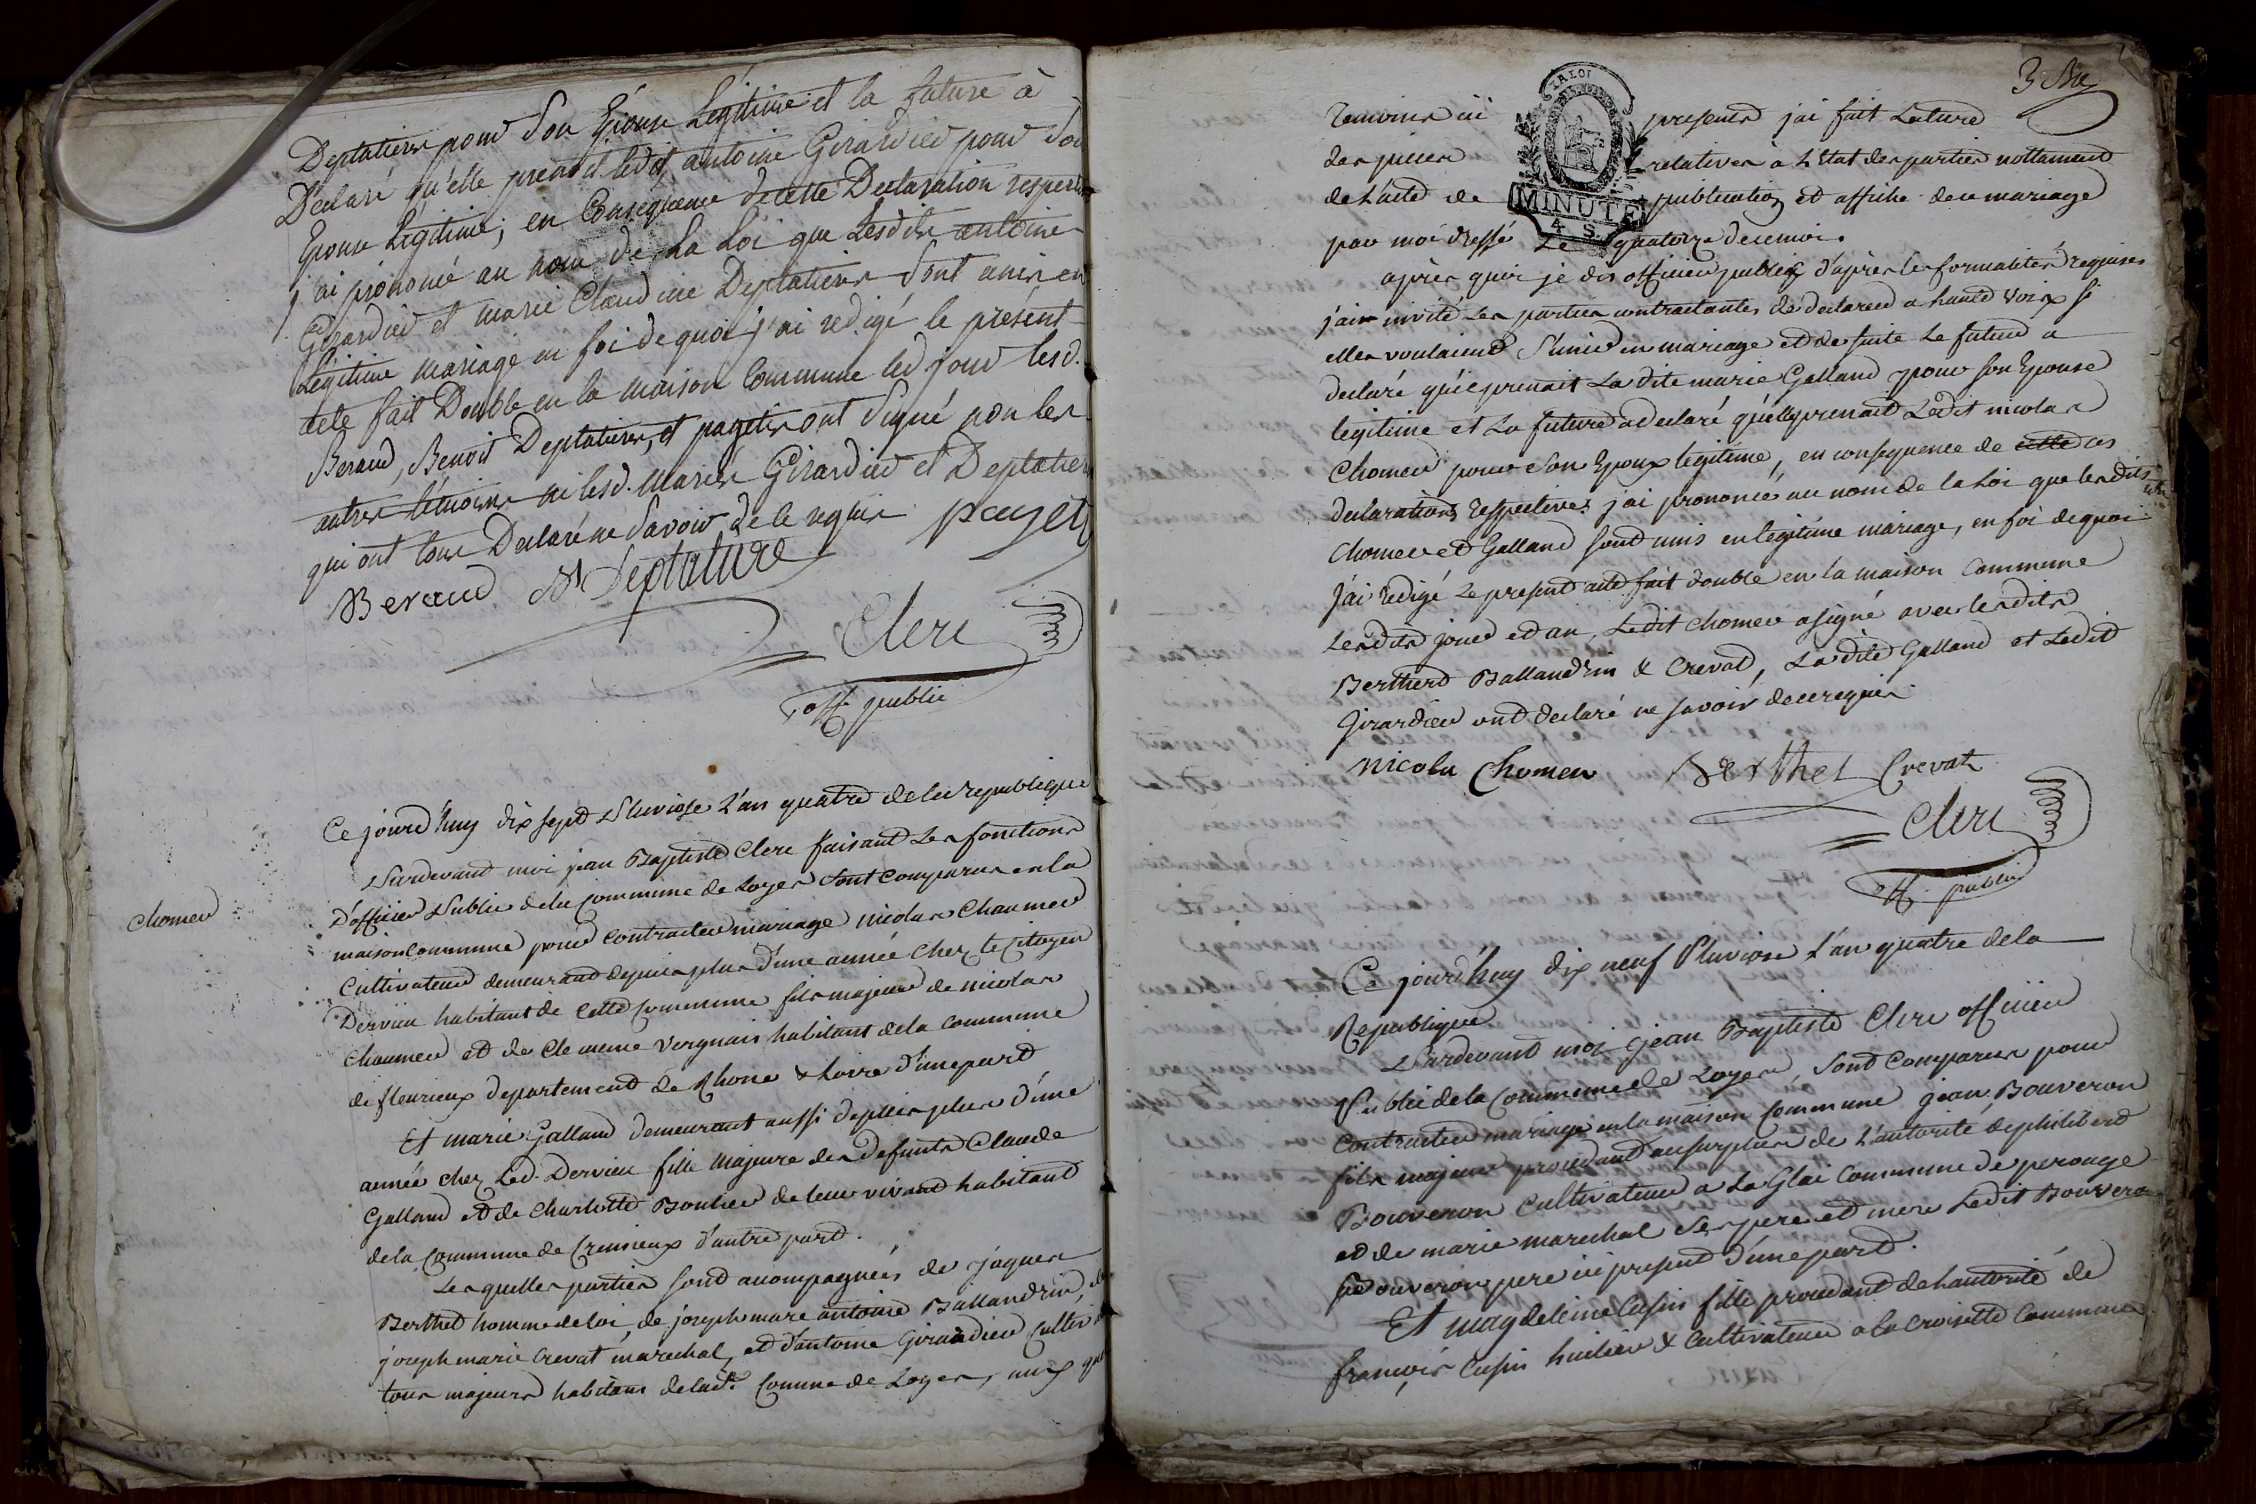 Deptatiere pour son Epouse Légitime et la future à
Déclaré qu'elle prenoit ledit antoine Girardier pour son
Epoux Légitime; en Consequence de cette Declaration respective
j'ai prononcé au nom de La Loi que Lesdits antoine
Girardier et marie Claudine Deptatiere sont unis en
Légitime mariage en foi de quoi j'ai redigé le présent
acte fait Double en la maison Commune led. jour lesd.
Beraud, Benoit Deptatiere, et pagets ont Signé non les
autres témoins ni lesd. Mariés Girardier et Deptatiere
qui ont tous Declaré ne Savoir de le requis
payet
Beraud Deptature
Clerc
off. public
Ce jourd'huy dix sept Pluviose L'an quatre de la republique
Pardevant moi jean Baptiste Clerc faisant Les fonctions
D'officier Public de la commune de Loyes sont comparus en la
chomer
maison commune pour contracter mariage nicolas Chaumer
Cultivateur demeurant depuis plus d'une année Chez le Citoyen
Dervieu habitant de cette Commune fils majeur de nicolas
Chaumer et de Clemence Vergnais habitant de la commune
de fleurieux departement de Rhone & Loire d'une part
Et marie Galland demeurant aussi depuis plus d'une
année chez Led. Dervieu fille majeure des defunts Claude
Galland et de Charlotte Boulier de leur vivant habitant
de la Commune de Cremieux d'autre part.
Lesquelles parties sont accompagnées de jaques
Berthet homme de loi, de joseph marc antoine Ballandrin, de
joseph marie Crevat marechal, et d'antoine Girardier Cultiv
tous majeurs habitans de lad. Comune de Loyes, aux qu
3 Bis
LA LOI
MINUTE
4 S.
temoins ici presents j'ai fait Lecture
des pieces relatives à L'Etat des parties nottament
de L'acte de publication et affiche de ce mariage
par moi dressé Le quatorze decemoi.
après quoi je dis officier public d'après les formalités requises
j'ai invité Les parties contractantes de declarer a haute voix si
elles voulaient S'unir en mariage et de suite Le futur a
declaré qu'il prenait La dite marie Galland pour son Epouse
legitime et La future a declaré qu'elle prenait Ledit nicolas
Chomer pour son Epoux legitime, en consequence de cette ces
declarations respectives j'ai prononcé au nom de la Loi que lesdits
chomer et Galland sont unis en legitime mariage, en foi de quoi
J'ai redigé Le present acte fait double en la maison Commune
Lesdits jour et an, Ledit chomer a signé avec lesdits
Berthet Ballandrin & Crevat, La dite Galland et Ledit
Girardier ont declaré ne savoir de ce requis
Nicola Chomer Berthet Crevat
Clerc
off. public
Ce jourd'huy dix neuf Pluviose L'an quatre de la
Republique
Pardevant moi jean Baptiste Clerc officier
Public de la Commune de Loyes, sont comparus pour
Contracter mariage en la maison Commune jean Bouveron
fils majeur procedant au surplus de L'autorité de philibert
Bouveron Cultivateur a La Glai Commune de perouge
et de marie marechal ses pere et mere Ledit Bouveron
Bouveron pere ici present d'une part.
Et magdeleine Cusin fille procedant de L'autorité de
françois Cusin huilier & Cultivateur a la Croisette Commune